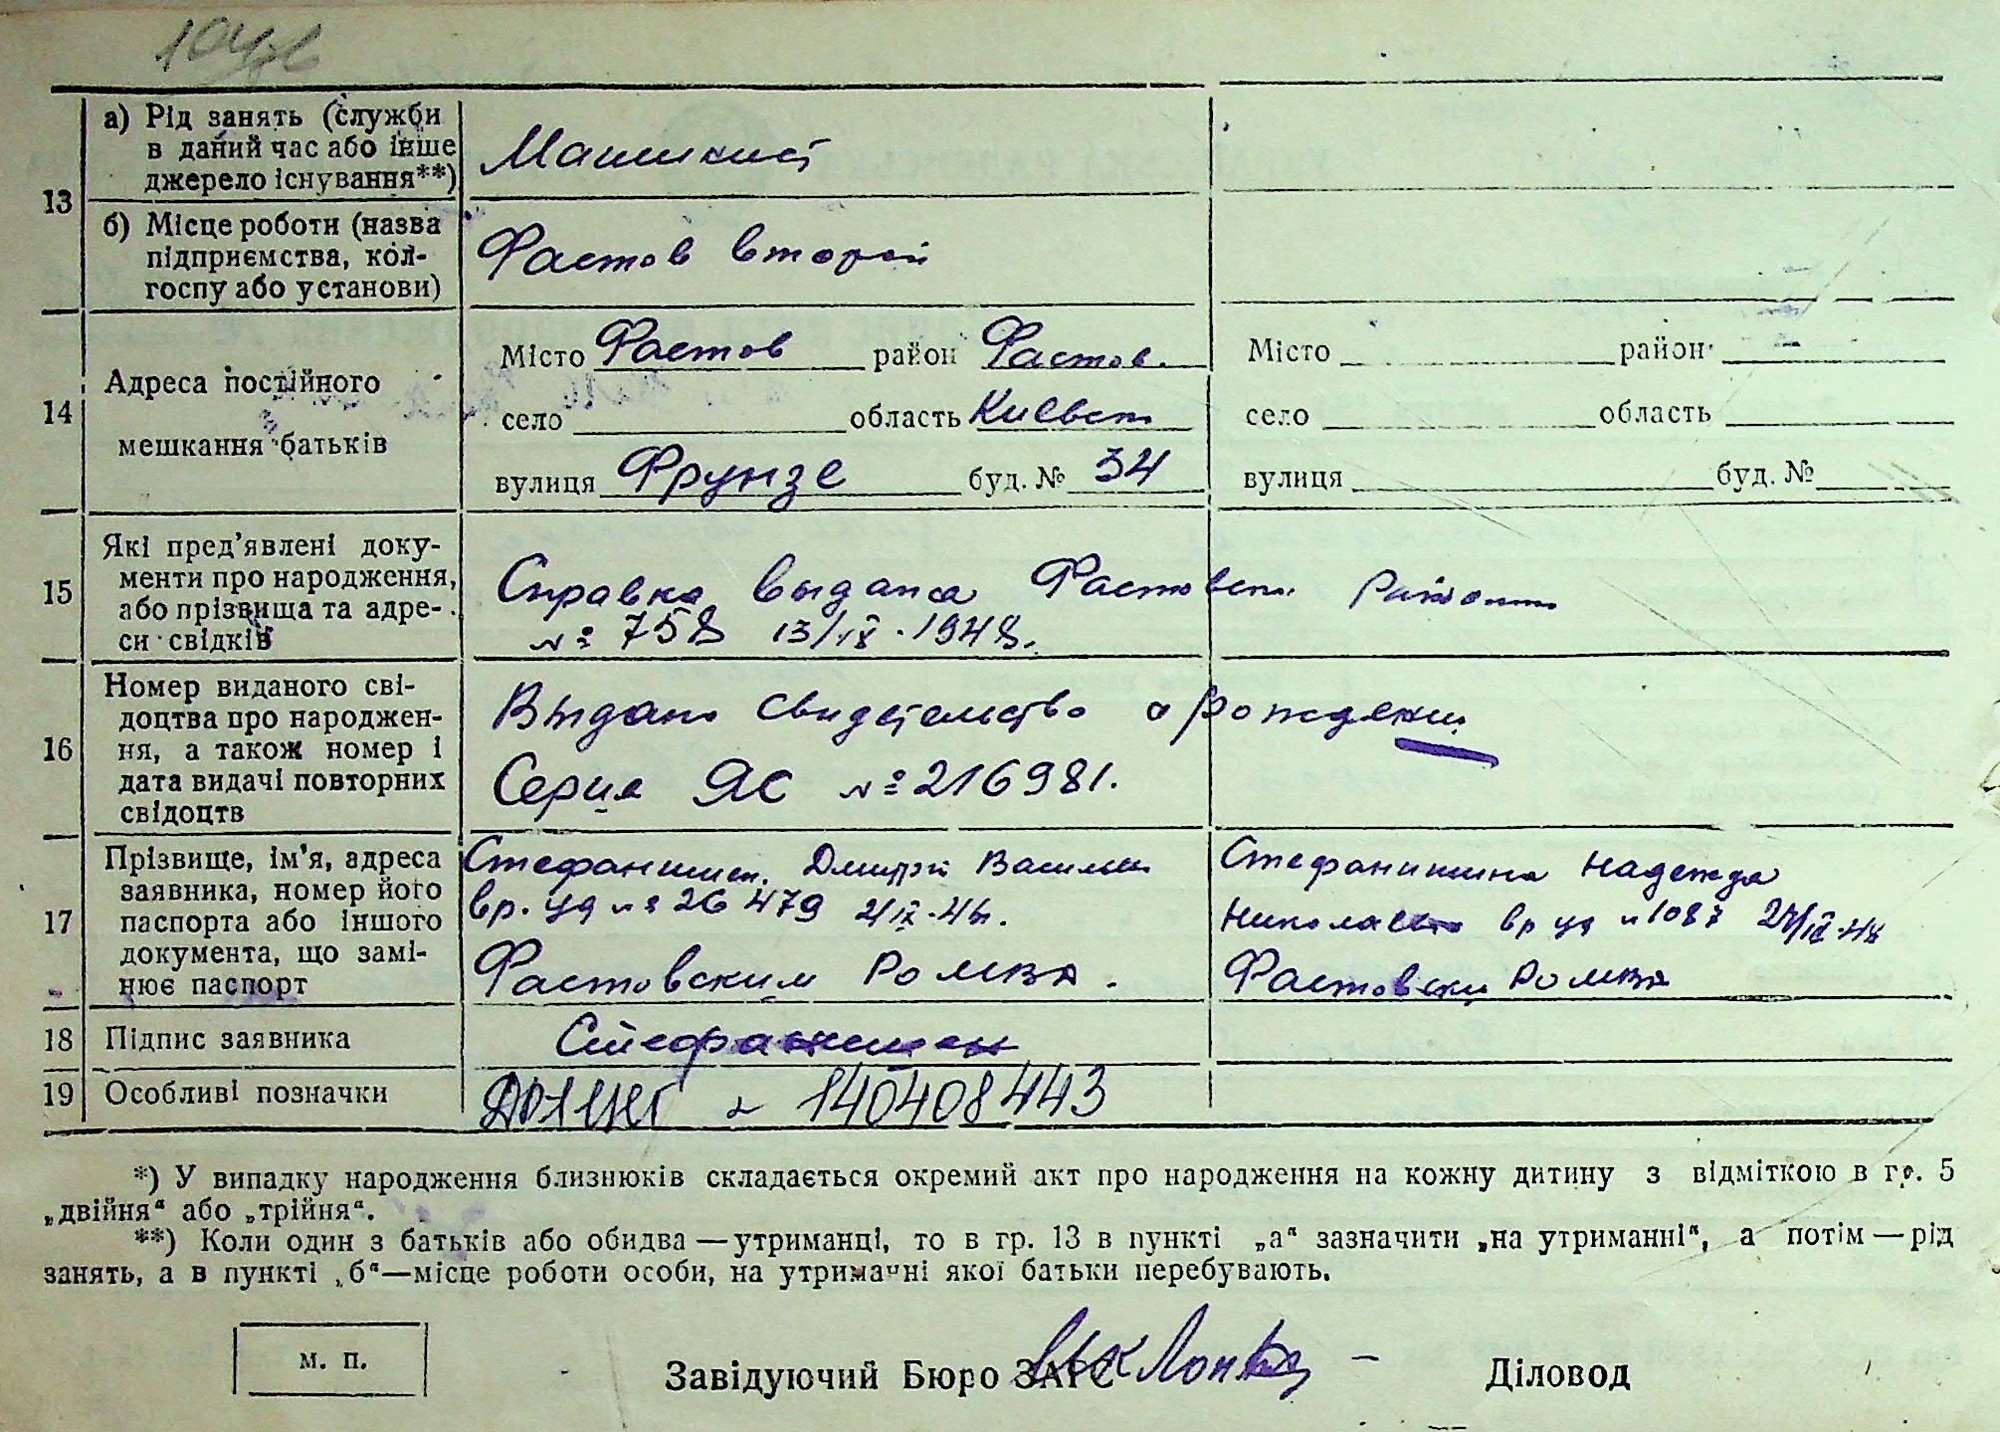 13
а) Рід занять (служби
в даний час або інше
джерело існування**)
Машинист
б) Місце роботи (назва
підприємства, кол-
госпу або установи)
Фастов второй
14
Адреса постійного
мешкання батьків
Місто Фастов район Фастов.
село область Киевск
вулиця Фрунзе буд. № 34
Місто район
село область
вулиця буд. №
15
Які пред'явлені доку-
менти про народження,
або прізвища та адре-
си свідків
Справка выдана Фастовск.
№ 758 13/IX.1948.
16
Номер виданого сві-
доцтва про народжен-
ня, а також номер і
дата видачі повторних
свідоцтв
Выдано свидетельство о рождении
Серия ЯС № 216981.
17
Прізвище, ім'я, адреса
заявника, номер його
паспорта або іншого
документа, що замі-
нює паспорт
Стефанишен. Дмитрй Василь
вр. уд № 26479
Фастовским РОМВД.
Стефанишина Надежда
вр уд № 1087
Фастовски РОМВД
18
Підпис заявника
Стефанишен
19
Особливі позначки
140408443
*) У випадку народження близнюків складається окремий акт про народження на кожну дитину з відміткою в гр. 5
„двійня“ або „трійня“.
**) Коли один з батьків або обидва — утриманці, то в гр. 13 в пункті „а“ зазначити „на утриманні“, а потім — рід
занять, а в пункті „б“—місце роботи особи, на утриманні якої батьки перебувають.
м. п.
Завідуючий Бюро ЗАГС
Діловод